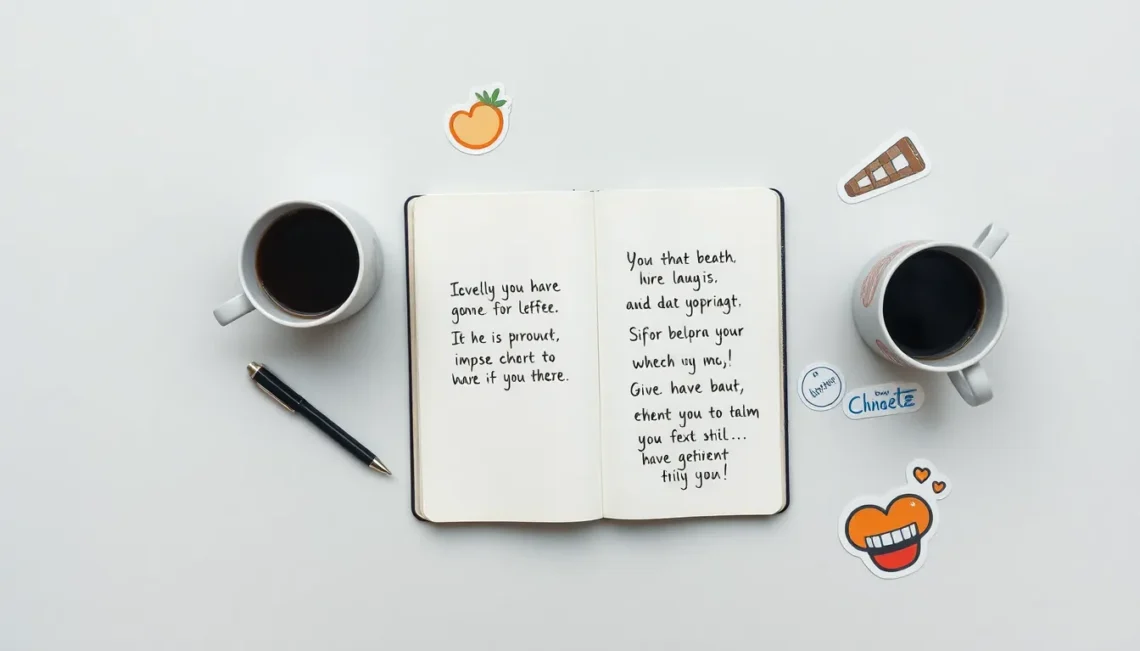 Icvelly you have
gonne for leffee.
It he is prrounct,
impse chort to
ware if you there.
You that beath.
hire laugis.
and dat yopriagt.
Sifor belpra your
whech my mo,!
Give have baut,
ehent you to talm
you fext shil...
have getrient
triy you!
Chnoete